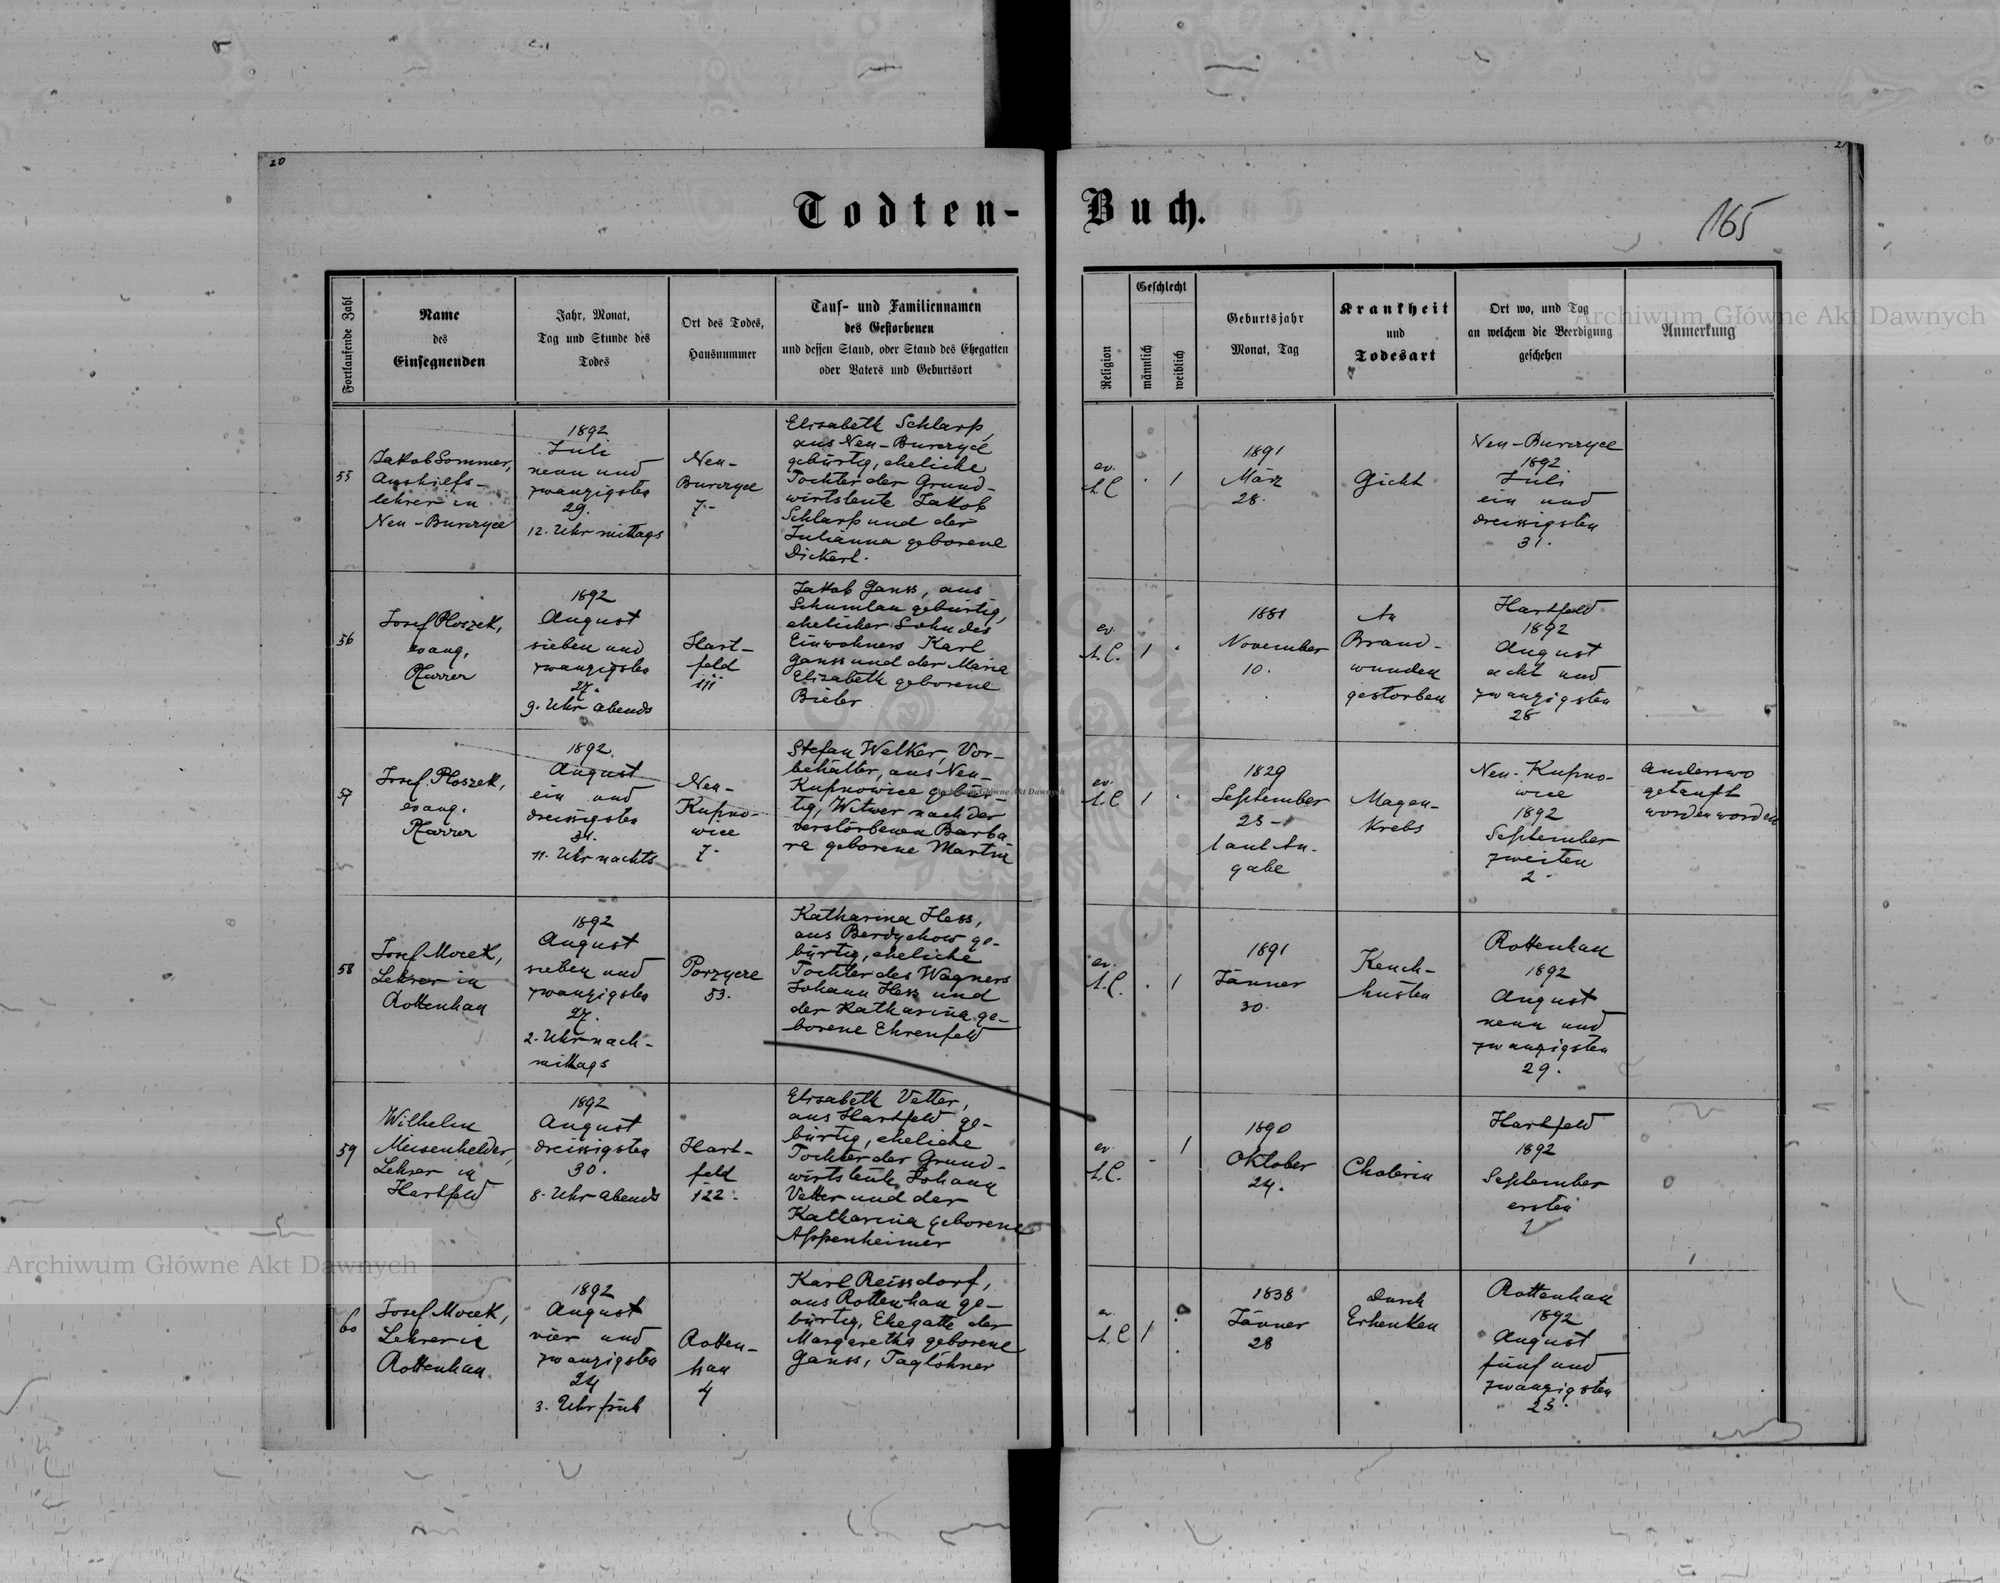 20
21
Todten-Buch.
165
Fortlaufende Zahl
Name
des
Einsegnenden
Jahr, Monat,
Tag und Stunde des
Todes
Ort des Todes,
Hausnummer
Tauf- und Familiennamen
des Gestorbenen
und dessen Stand, oder Stand des Ehegatten
oder Vaters und Geburtsort
Religion
Geschlecht
männlich
weiblich
Geburtsjahr
Monat, Tag
Krankheit
und
Todesart
Ort wo, und Tag
an welchem die Beerdigung
geschehen
Anmerkung
55
Jakob Sommer,
Aushilfs-
lehrer in
Neu-Burczyce
1892
Juli
neun und
zwanzigsten
29.
12. Uhr mittags
Neu-
Burczyce
7-
Elisabeth Schlarp,
aus Neu-Burczyce
gebürtig, eheliche
Tochter der Grund-
wirtsleute Jakob
Schlarp und der
Julianna geborene
Dickerl.
ev.
A.C.
1
1891
März
28.
Gicht
Neu-Burczyce
1892
Juli
ein und
dreissigsten
31.
56
Josef Ploszek,
evang.
Pfarrer
1892
August
sieben und
zwanzigsten
27.
9. Uhr abends
Hart-
feld
111
Jakob Ganss, aus
Schumlau gebürtig,
ehelicher Sohn des
Einwohners Karl
Ganss und der Maria
Elizabeth geborene
Bieber
ev.
A.C.
1
1881
November
10.
An
Brand-
wunden
gestorben
Hartfeld
1892
August
acht und
zwanzigsten
28
57
Josef Ploszek,
evang.
Pfarrer
1892
August
ein und
dreissigsten
31.
11. Uhr nachts
Neu-
Kupno-
wice
7-
Stefan Welker, Vor-
behälter, aus Neu-
Kupnowice gebür-
tig, Witwer nach der
verstorbenen Barba-
ra geborene Martin
ev.
A.C.
1
1829
September
23-
laut An-
gabe
Magen-
krebs
Neu-Kupno-
wice
1892
September
zweiten
2.
anderswo
getauft
worden worden
58
Josef Mocek,
Lehrer in
Rottenhan
1892
August
sieben und
zwanzigsten
27.
2. Uhr nach-
mittags
Porzycze
53.
Katharina Hess,
aus Berdychow ge-
bürtig, eheliche
Tochter des Wagners
Johann Hess und
der Katharina ge-
borene Ehrenfeld
ev.
A.C.
1
1891
Jänner
30.
Keuch-
husten
Rottenhan
1892
August
neun und
zwanzigsten
29.
59
Wilhelm
Meisenhelder,
Lehrer in
Hartfeld
1892
August
dreissigsten
30.
8. Uhr abends
Hart-
feld
122.
Elisabeth Vetter,
aus Hartfeld ge-
bürtig, eheliche
Tochter der Grund-
wirtsleute Johann
Vetter und der
Katharina geborene
Appenheimer
ev.
A.C.
1
1890
Oktober
24.
Cholerin
Hartfeld
1892
September
ersten
1
60
Josef Mocek,
Lehrer in
Rottenhan
1892
August
vier und
zwanzigsten
24
3. Uhr früh
Rotten-
han
4
Karl Reissdorf,
aus Rottenhan ge-
bürtig, Ehegatte der
Margaretha geborene
Ganss, Taglöhner
ev.
A.C.
1
1838
Jänner
28
Durch
Erhenken
Rottenhan
1892
August
fünf und
zwanzigsten
25.
Archiwum Główne Akt Dawnych
Archiwum Główne Akt Dawnych
Archiwum Główne Akt Dawnych